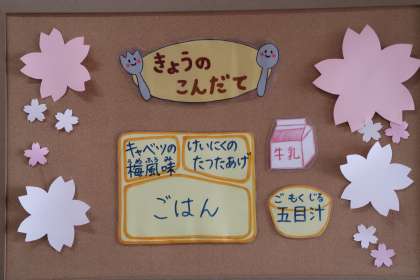 きょうの
こんだて
キャベツの
梅風味
けいにくの
たつたあげ
牛乳
ごはん
ごもくじる
五目汁